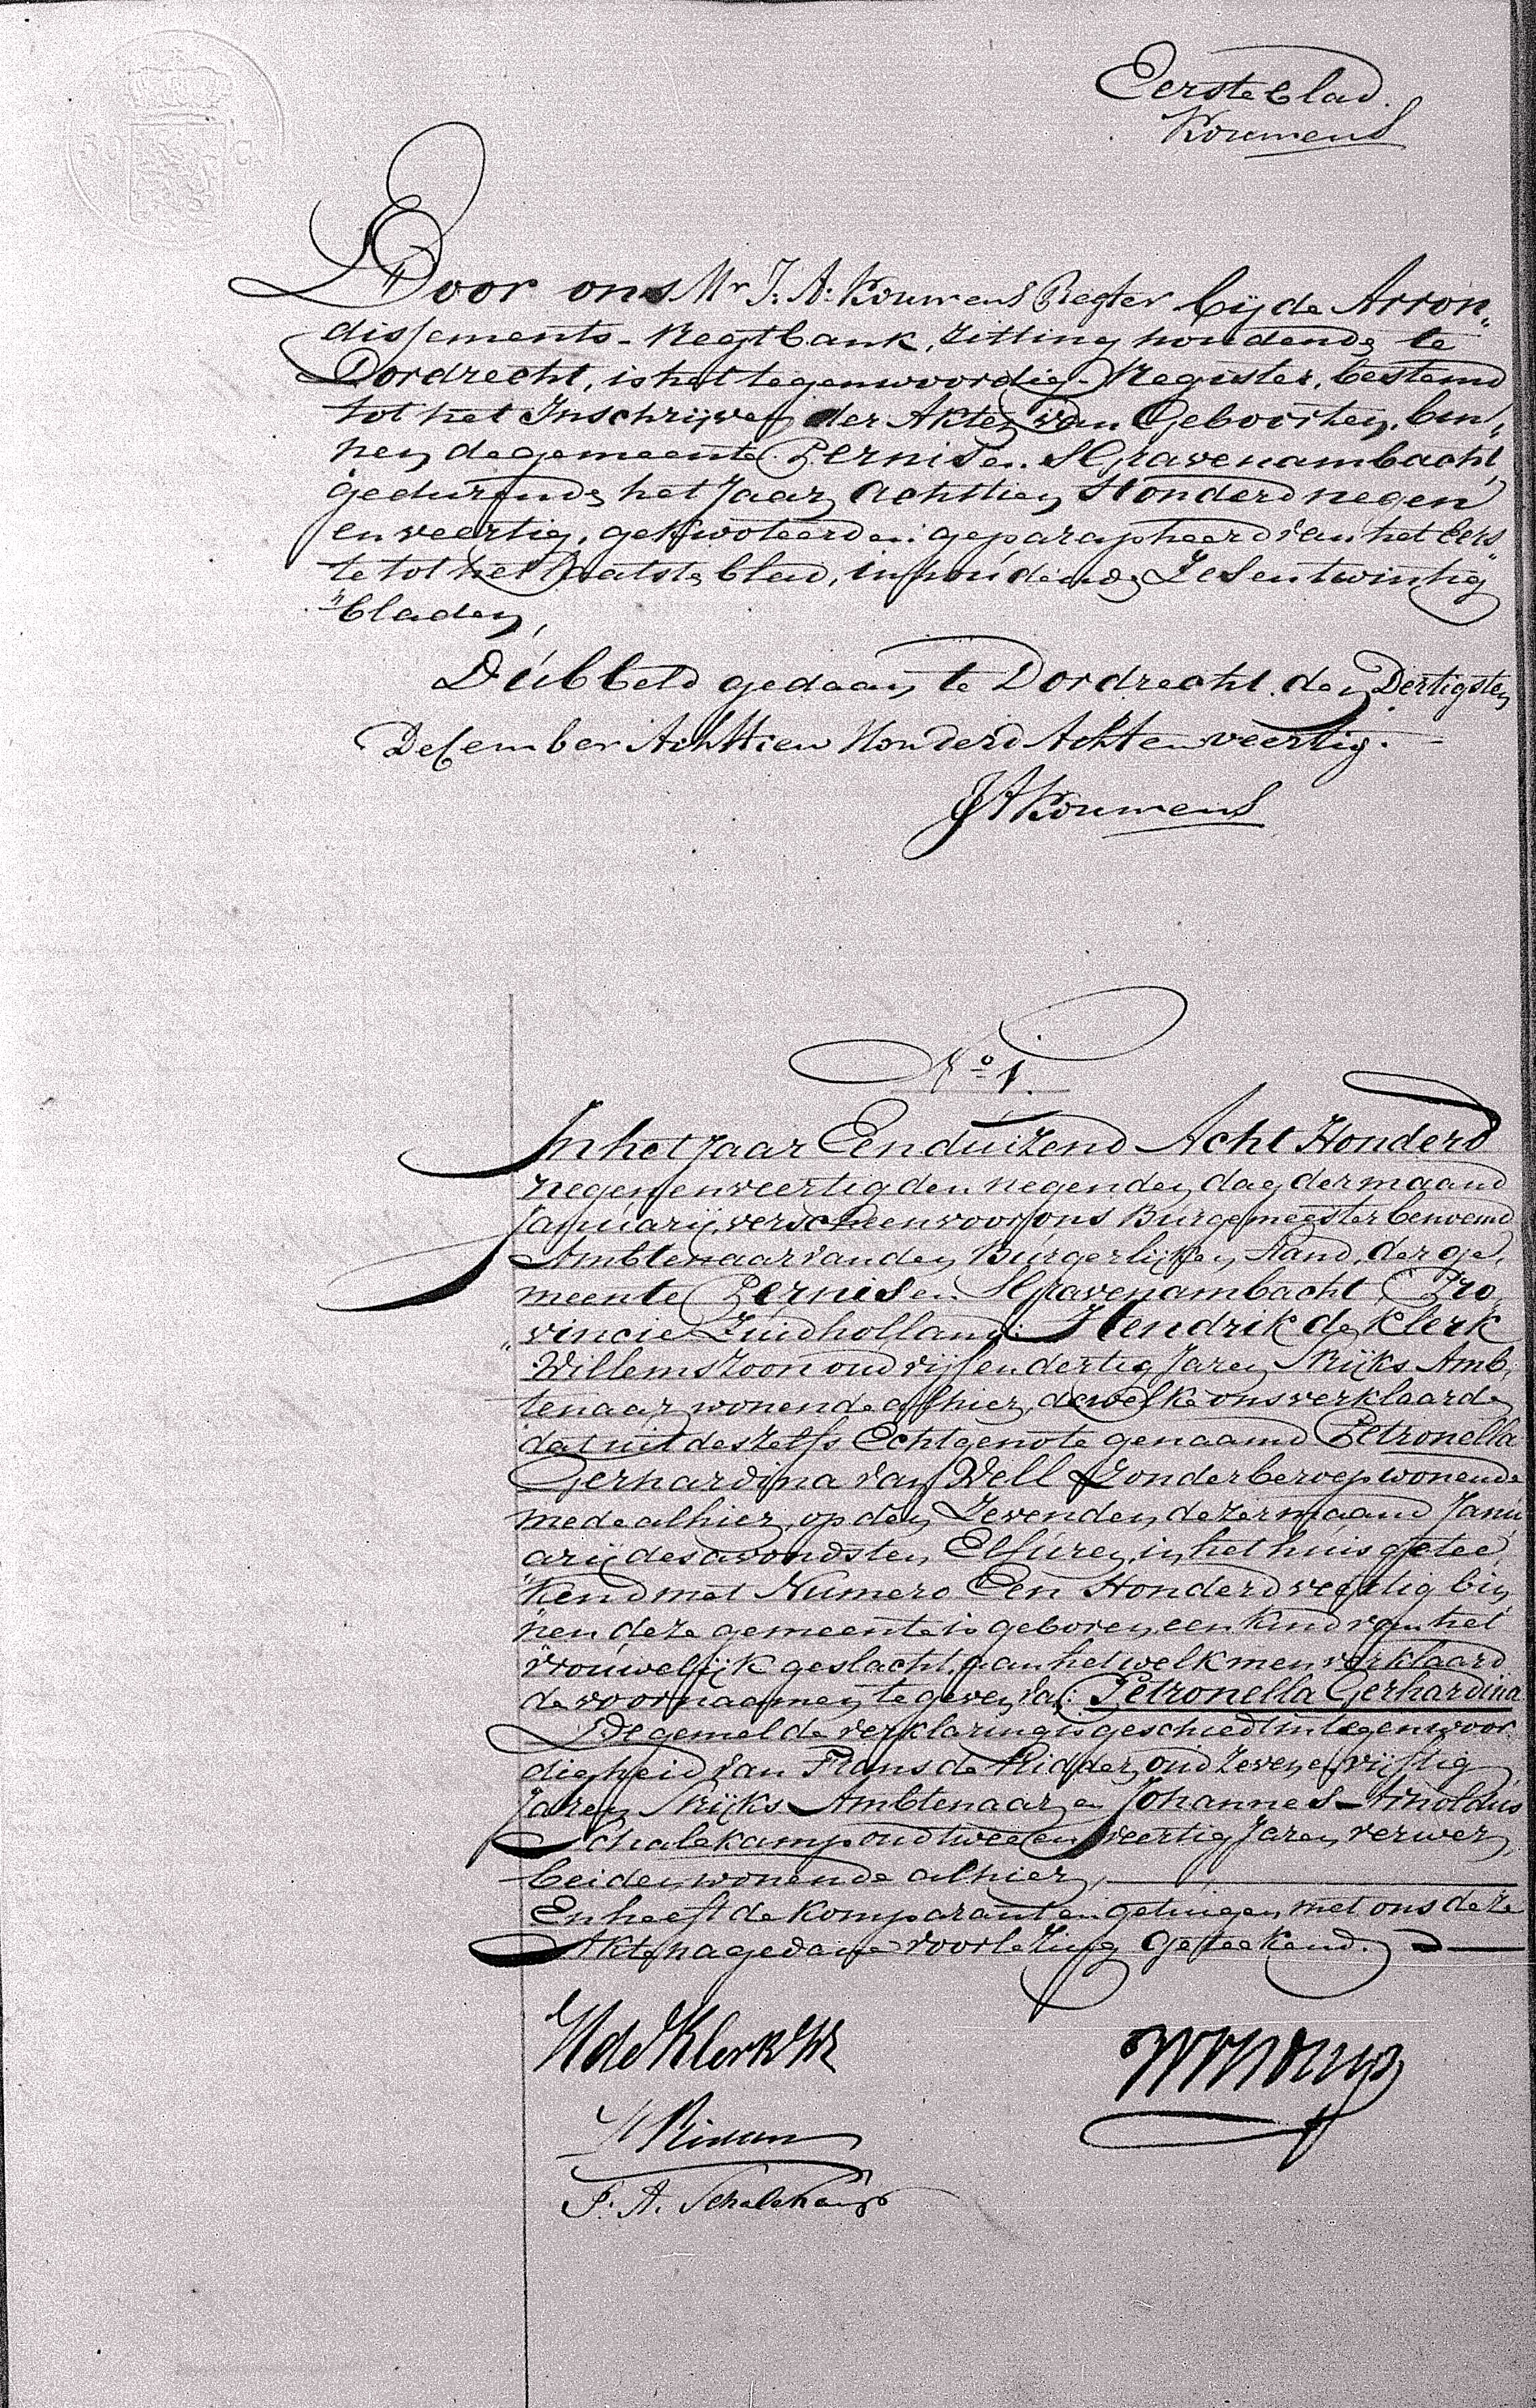 Eerste blad.
Kouwens
Door ons Mr J: A: Kouwens Regter bij de Arron„
dissements-Regtbank, Zitting houdende te
Dordrecht, is het tegenwoordig Register, bestemd
tot het Inschrijven der Akten van Geboorten, bin„
nen de gemeente Pernis en SGravenambacht,
gedurende het Jaar Achttien Honderd negen
en veertig, gekwoteerd en geparapheerd van het Eers„
te tot het Laatste blad, inhoudende Zes en twintig
"bladen,
Dubbeld gedaan te Dordrecht den Dertigsten
December Achttien Honderd Acht en veertig.
JAKouwens
No 1.
In het Jaar Een duizend Acht Honderd
negen en veertig den negenden dag der maand
Januarij, verscheen voor ons Burgemeester benoemd
Ambtenaar van den Burgerlijken Stand, der ge„
meente Pernis en SGravenambacht, Pro„
"vincie Zuidholland: Hendrik de Klerk
Willemszoon oud vijf en dertig Jaren, SRijks Amb„
tenaar, wonende alhier, dewelke ons verklaarde,
dat uit deszelfs Echtgenote genaamd Petronella
Gerhardina van Well Zonder beroep wonende
mede alhier, op den Zevenden dezer maand Janu
arij des avonds ten Elf uren, in het huis getee„
"kend met Numero Een Honderd veertig bin„
"nen deze gemeente is geboren, een kind van het
vrouwelijk geslacht, aan het welk men verklaard
de voornaamen te geven van Petronella Gerhardina
De gemelde verklaring is geschied in tegenwoor„
digheid van Frans de Ridder, oud Zeven en vijftig
Jaren, SRijks Ambtenaar, en Johannes Arnoldus
Schalekamp oud twee en veertig Jaren, verwer,
beiden wonende alhier,
En heeft de Komparant en getuigen, met ons deze
Akte na gedane voorlezing geteekend.
H de Klerk Wz
F. A. Schalekamp